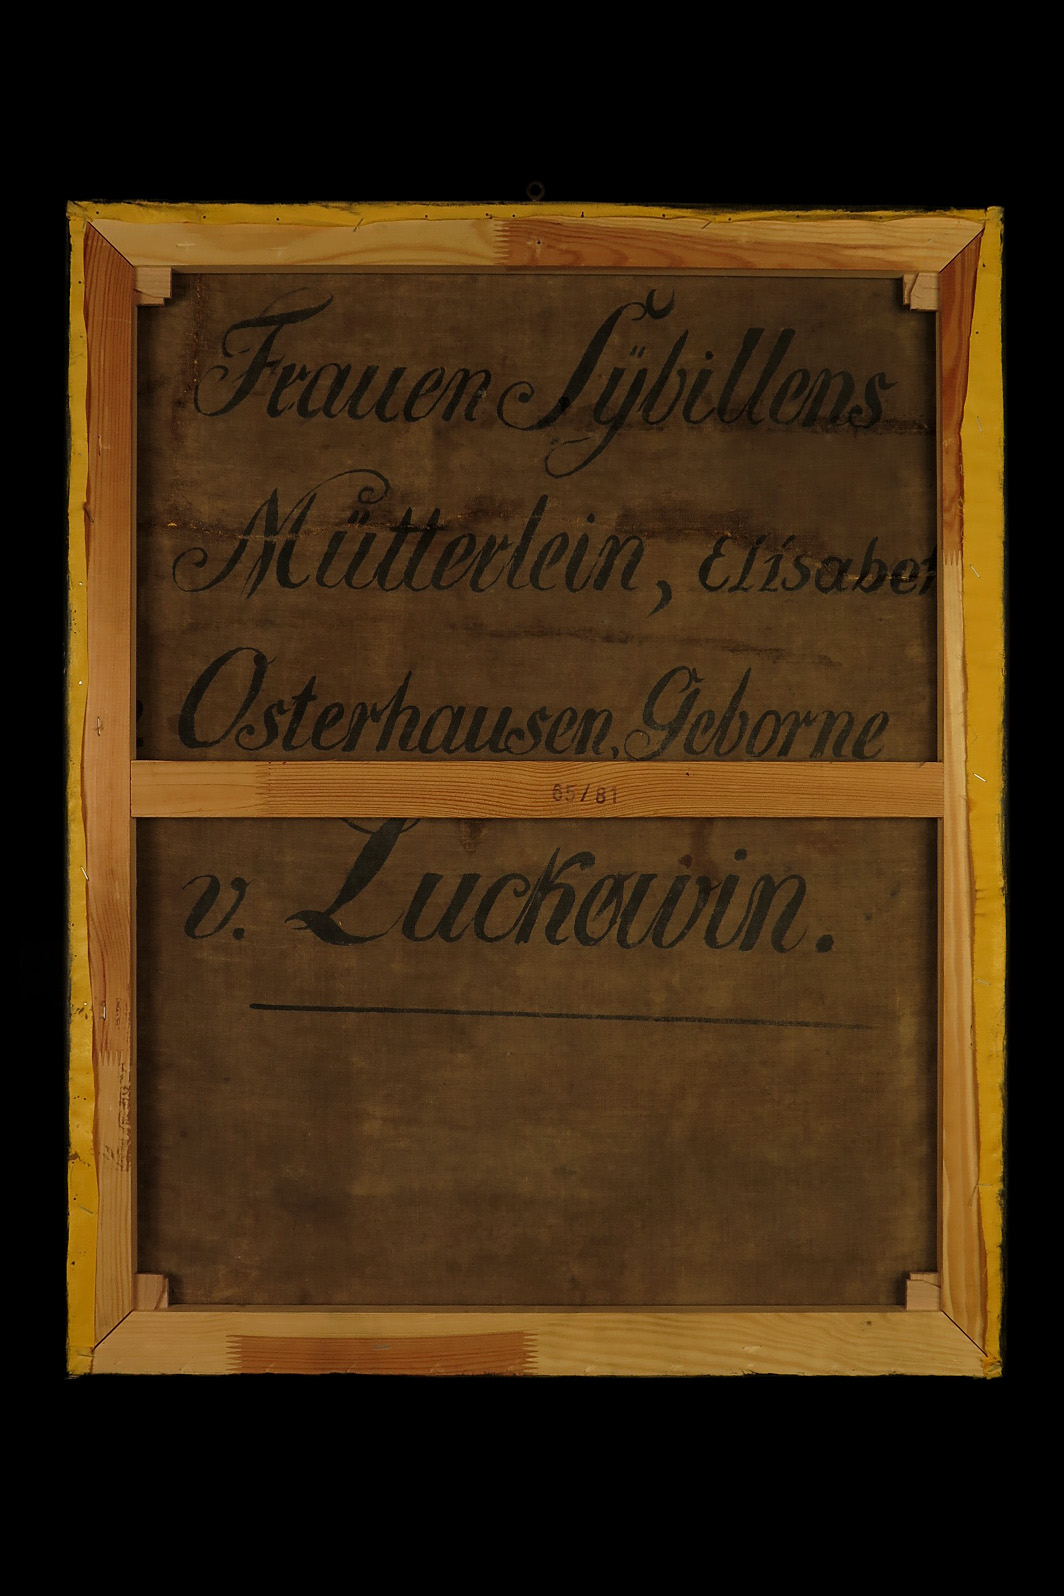 Frauen Sÿbillens
Mütterlein, Elisabet
Osterhausen, Geborne
65/81
v. Luckowin.